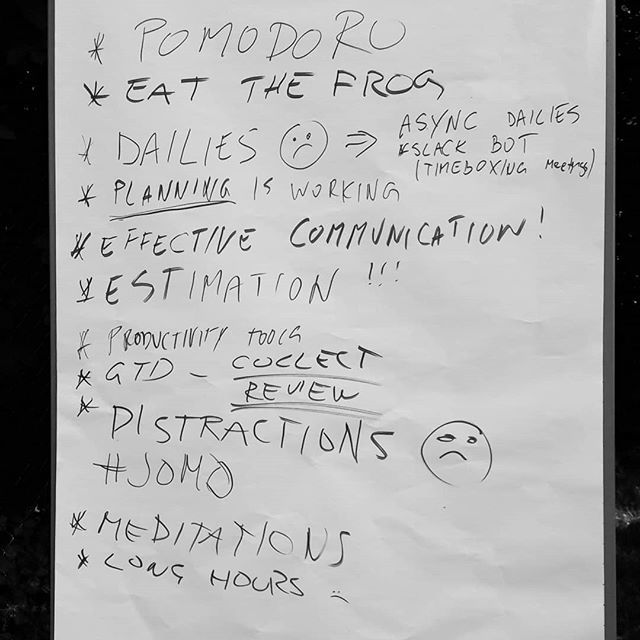 * POMODORO
* EAT THE FROG
* DAILIES ☹ ⇒ ASYNC DAILIES
*SLACK BOT
(TIMEBOXING Meetings)
* PLANNING IS WORKING
* EFFECTIVE COMMUNICATION!
* ESTIMATION !!!
* PRODUCTIVITY TOOLS
* GTD - COLLECT
REVIEW
* DISTRACTIONS ☹
#JOMO
* MEDITATIONS
* LONG HOURS ☹